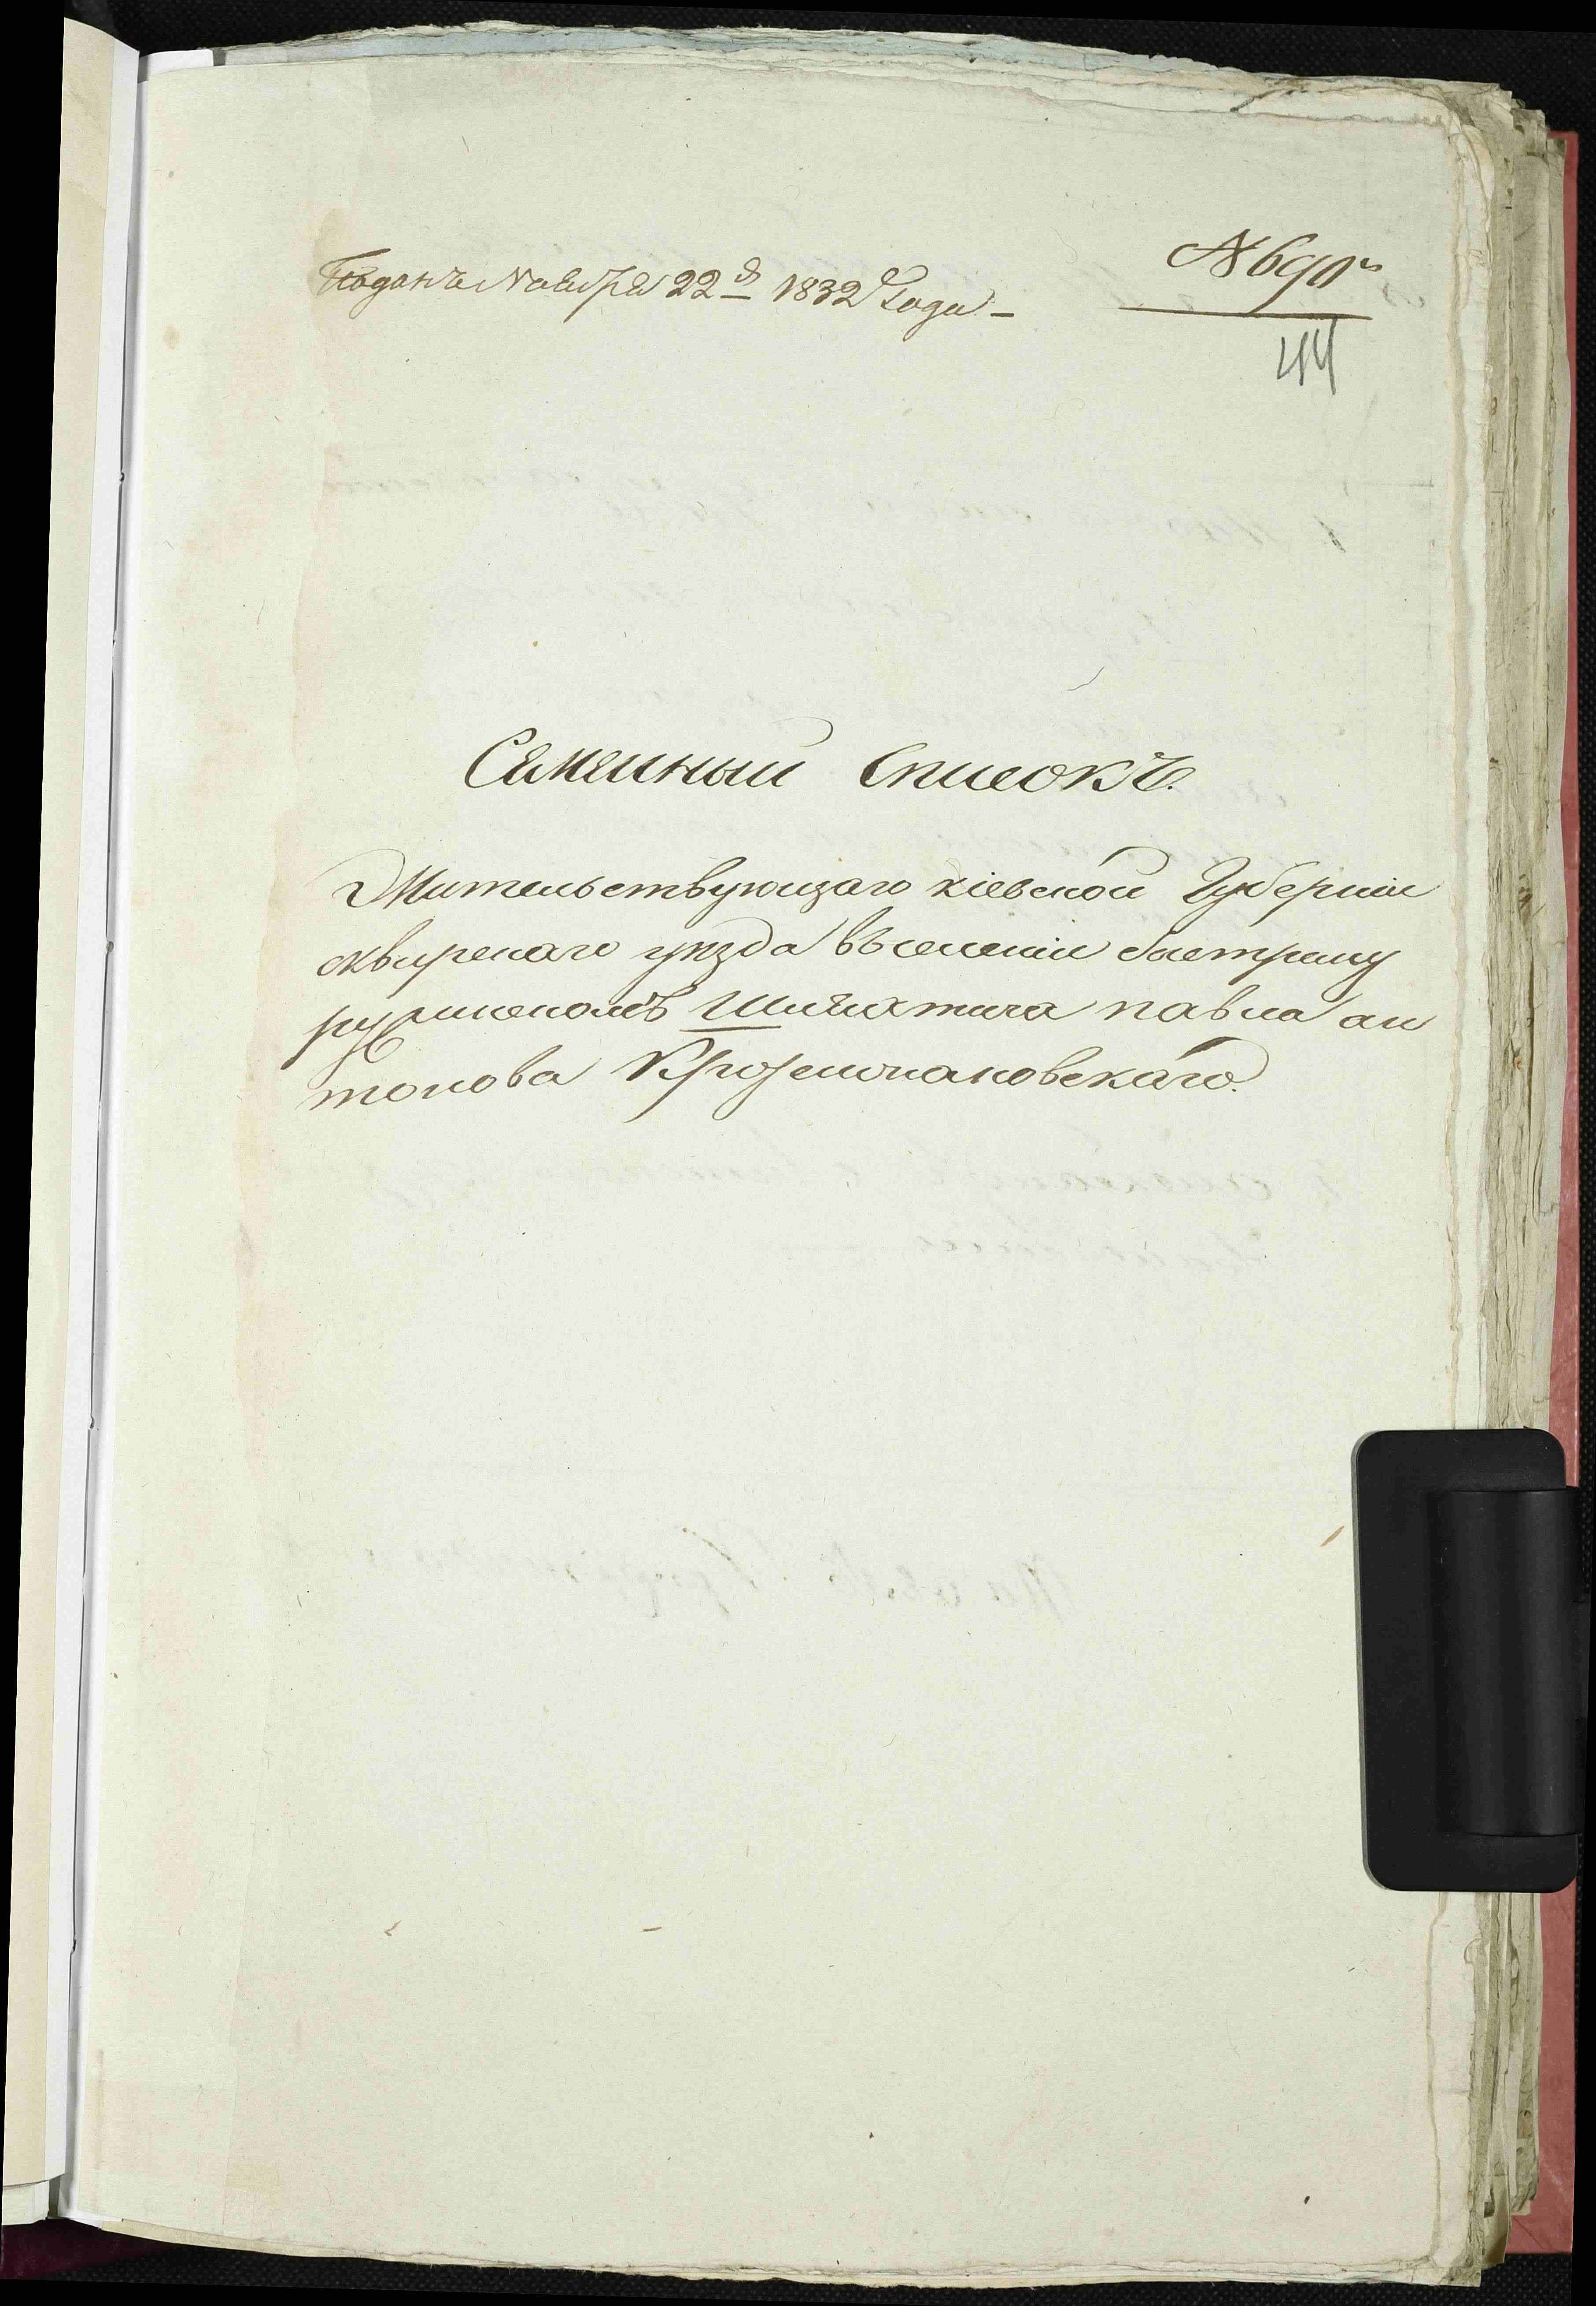 Поданъ Ноября 22 д 1832 года –
№ 690
44
Семейный Списокъ.
Жительствующаго кіевской Губерніи
сквирскаго уѣзда въ селеніи быстрику
ружинскомъ Шляхтича павла ан
тонова